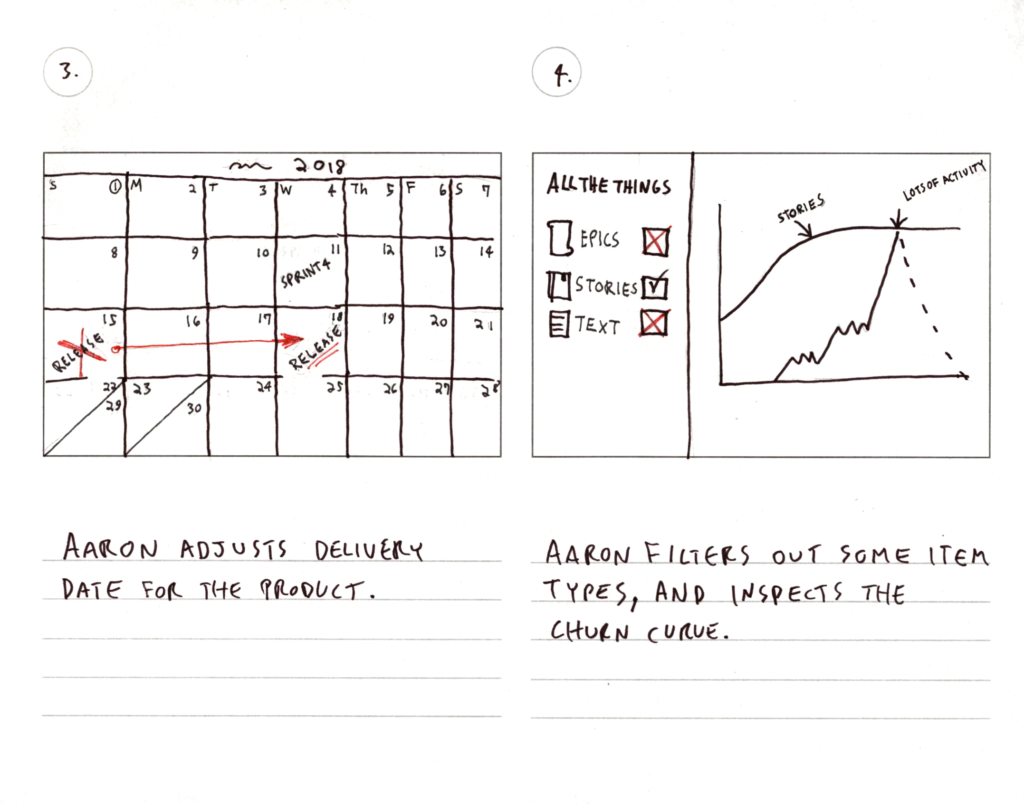 3.
2018
S 1 M 2 T 3 W 4 Th 5 F 6 S 7
8 9 10 11 12 13 14
SPRINT 4
15 16 17 18 19 20 21
RELEASE
RELEASE
22 23 24 25 26 27 28
29 30
AARON ADJUSTS DELIVERY
DATE FOR THE PRODUCT.
4.
ALL THE THINGS
EPICS
STORIES
TEXT
STORIES
LOTS OF ACTIVITY
AARON FILTERS OUT SOME ITEM
TYPES, AND INSPECTS THE
CHURN CURVE.